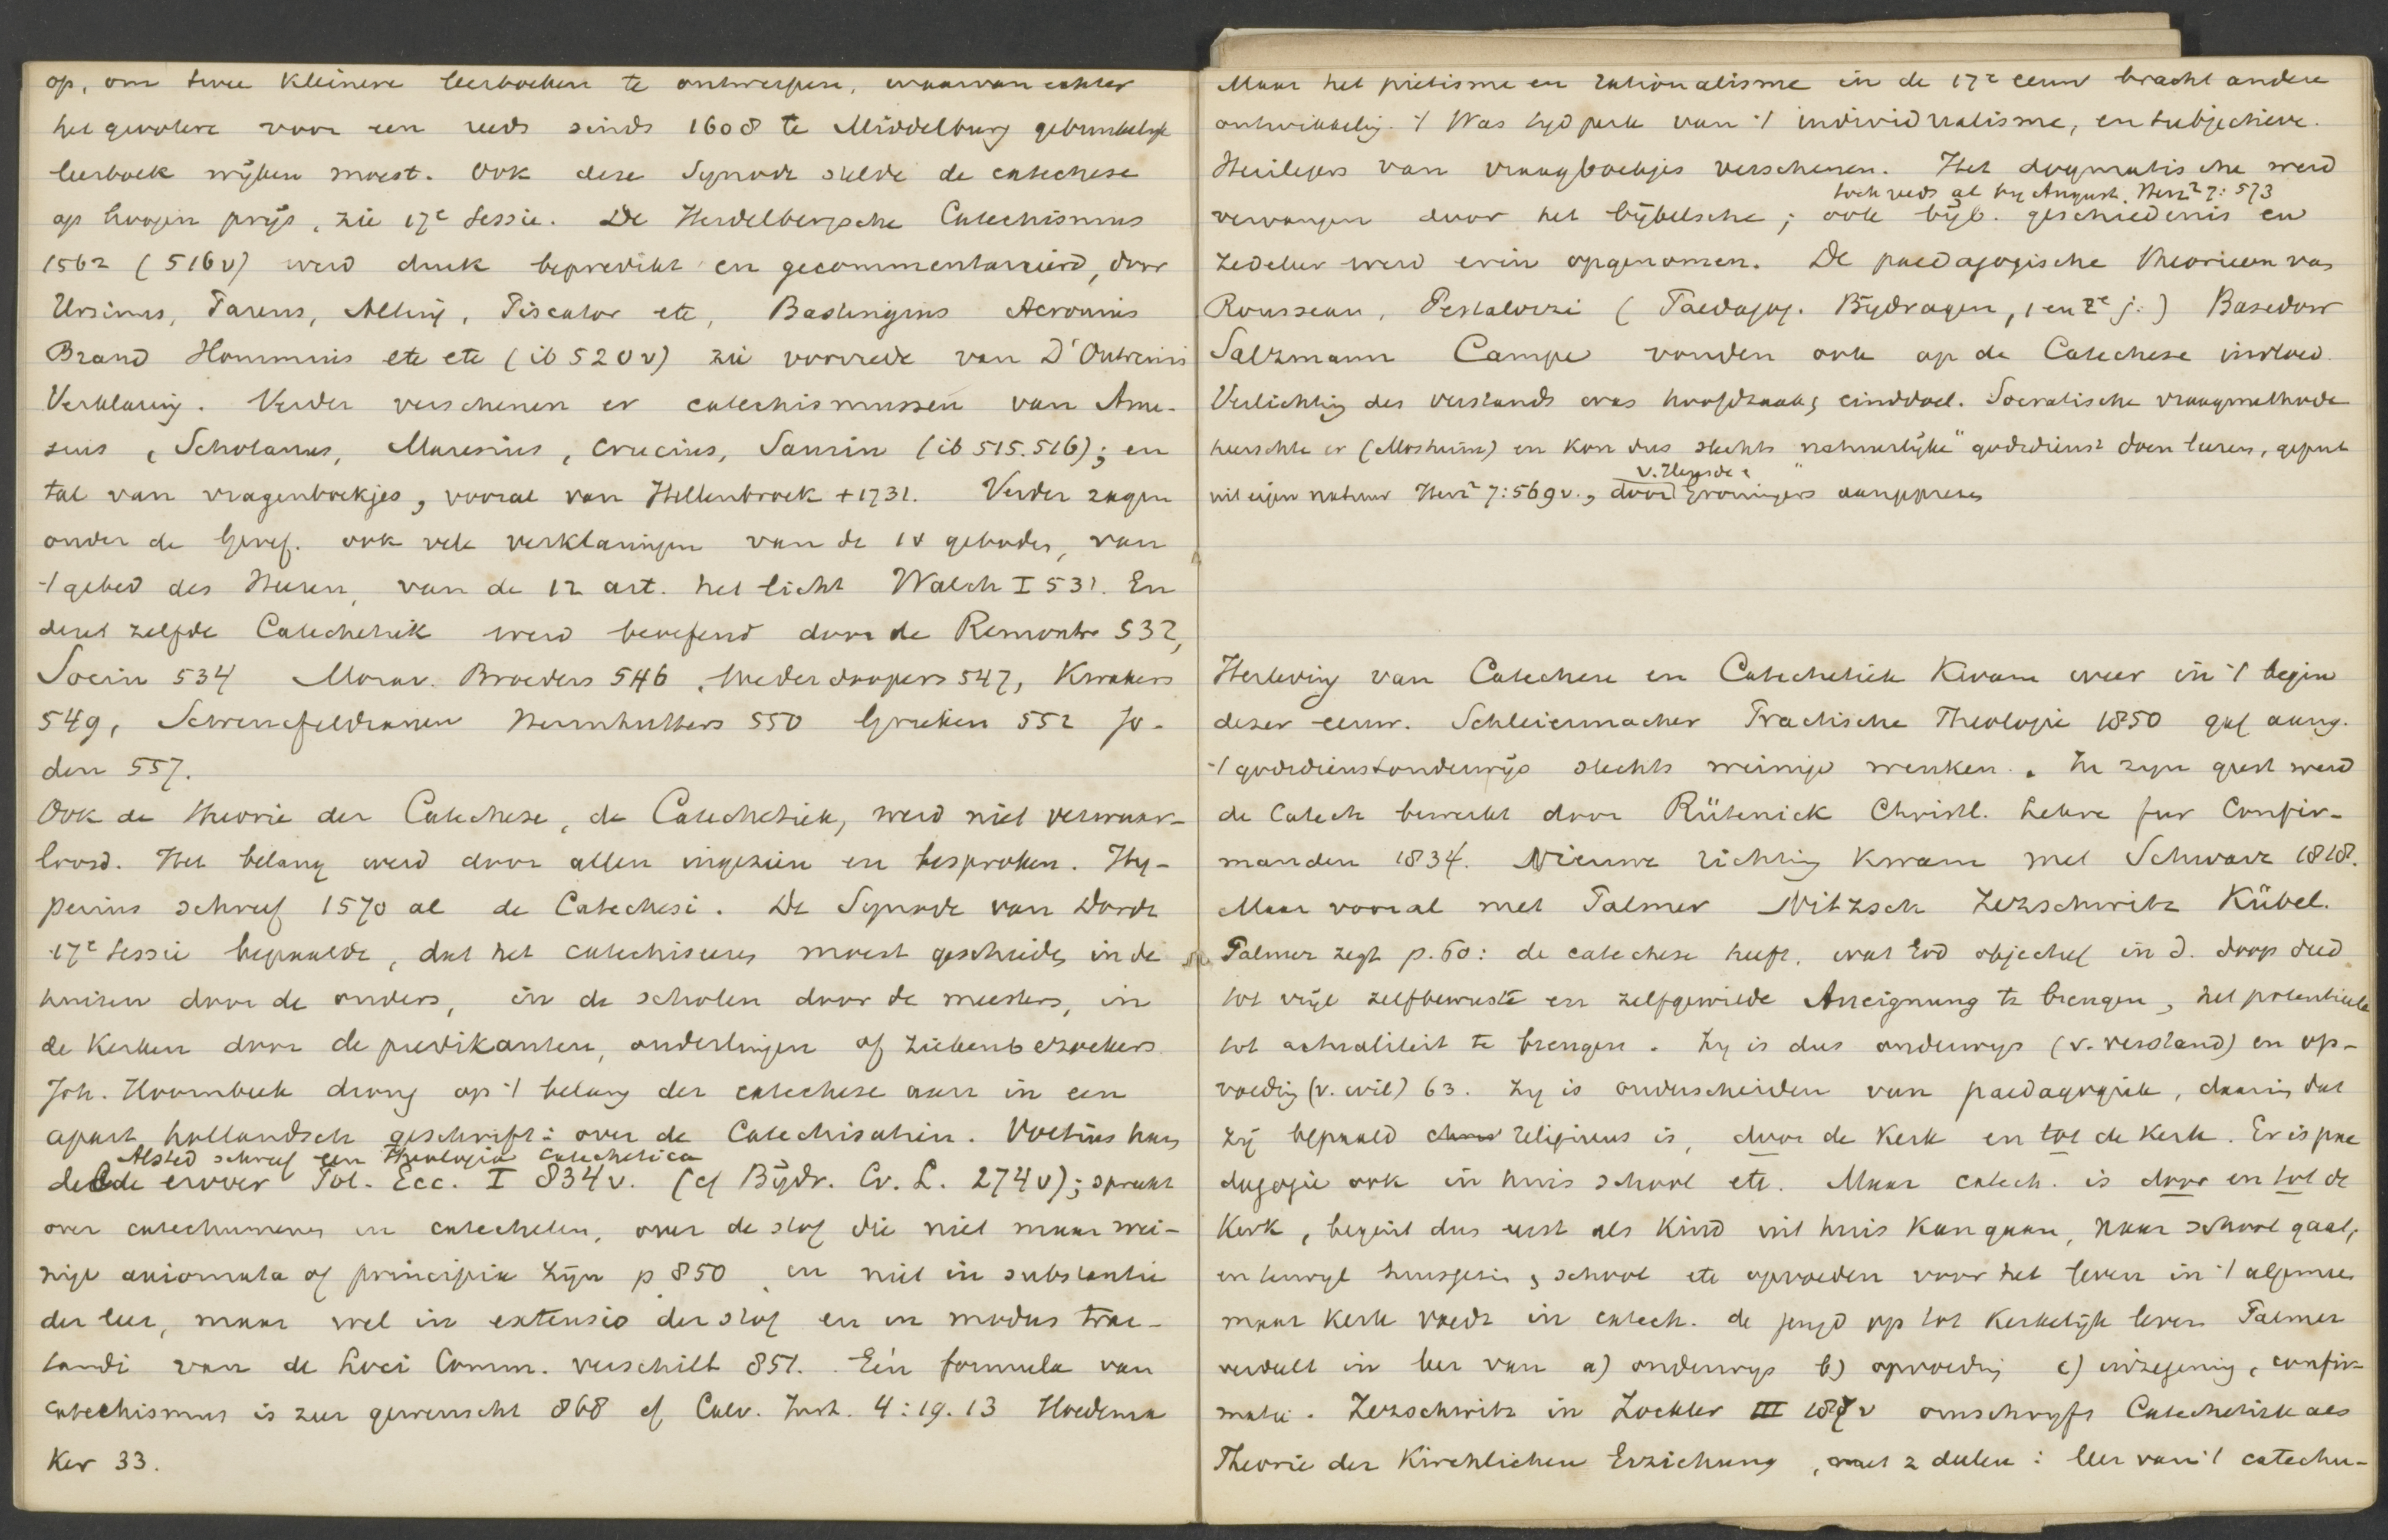 op, om twee kleinere leerboeken te ontwerpen, waarvan echter
het grootere voor een reeds sinds 1608 te Middelburg gebruikelijk
leerboek wijken moest. Ook deze Synode stelde de catechese
op hoogen prijs, zie 17e Sessie. De Heidelbergsche Catechismus
1562 (516v) werd druk bepredikt en gecommentarieerd, door
Ursinus, Pareus, Alting, Piscator etc, Bastingius Acronius
Brand Hommius etc etc (ib 520v) zie voorrede van D'Outreins
Verklaring. Verder verschenen er catechismussen van Ame-
sius, Scholanus, Maresius, Crucius, Saurin (ib 515.516); en
tal van vragenboekjes, vooral van Hellenbroek +1731. Verder zagen
onder de Geref. ook vele verklaringen van de 10 geboden, van
't gebed des Heeren, van de 12 art. het licht Walch I 531. En
deze zelfde Catechetik werd beoefend door de Remonstr 532,
Socin 534 Morav. Broeders 546, Wederdoopers 547, Kwakers
549, Schwenckfeldianen Hernhutters 550 Grieken 552 Jo-
den 557.
Ook de theorie der Catechese, de Catechetiek, werd niet verwaar-
loosd. Het belang werd door allen ingezien en besproken. Hy-
perius schreef 1570 al de Catechesi. De Synode van Dordt
17e Sessie bepaalde, dat het catechiseeren moest geschieden in de
huizen door de ouders, in de scholen door de meesters, in
de Kerken door de predikanten, ouderlingen of ziekenbezoekers
Joh. Hoornbeek drong op 't belang der catechese aan in een
apart hollandsch geschrift: over de Catechisatien. Voetius han,
Alsted schreef een Theologia catechetica
delde erover Pol. Ecc. I 834v. (cf Bijdr. Cv. L. 274v); spreekt
over catechumenen en catecheten, over de stof die niet maar wei-
nige axiomata of principia zijn p 850 en niet in substantie
der leer, maar wel in extensio der stof en in modus trac-
tandi van de Loci Comm. verschilt 851. Eén formula van
catechismus is zeer gewenscht 868 cf Calv. Inst. 4:19.13 Hoedema
Ker 33.
Maar het pietisme en rationalisme in de 17e eeuw bracht andere
ontwikkelig. 't Was tijdperk van 't individualisme, en subjectieve.
Heilegers van vraagboekjes verschenen. Het dogmatische werd
toch reeds al by August. Herz2 7:573
vervangen door het bijbelsche; ook bijb. geschiedenis en
zedeleer werd erin opgenomen. De paedagogische theorieen van
Rousseau, Pestalozzi (Paedagog. Bijdragen, 1 en 2e j.) Basedow
Salzmann Campe vonden ook op de Catechese invloed
Verlichting des verstands was hoofdzaak, einddoel. Socratische vraagmethode
heerschte er (Mosheim) en kon dus slechts "natuurlijke" godsdienst doen leeren, geput
v. Heusde &
uit eigen natuur Herz2 7:569v., door Groningers aangeprezen
Herleving van Catechese en Catechetiek kwam weer in 't begin
dezer eeuw. Schleiermacher Practische Theologie 1850 gaf aang.
't godsdienstonderwijs slechts weinige wenken. In zijn geest werd
de Catech bewerkt door Rütenick Christl. Lehre fur Confir-
manden 1834. Nieuwe richting kwam met Schwarz 1818.
Maar vooral met Palmer Nitzsch Zezschwitz Kübel.
Palmer zegt p. 60: de catechese heeft, wat God objectief in d. doop deed
tot vrije zelfbewuste en zelfgewilde Aneignung te brengen, het potentieele
tot actualiteit te brengen. Zy is dus onderwys (v. verstand) en op-
voeding (v. wil) 63. Zy is onderscheiden van paedagogiek, daarin dat
zij bepaald religieus is, door de kerk en tot de kerk. Er is pae
dagogie ook in huis school etc. Maar catech. is door en tot de
Kerk, begint dus eerst als kind uit huis kan gaan, naar school gaat,
en terwyl huisgezin, school etc opvoeden voor het leven in 't algemeen
maar kerk voedt in catech. de jeugd op tot kerkelijk leven Palmer
verdeelt in leer van a) onderwys b) opvoeding c) inzegening, confir-
matie. Zezschwitz in Zockler III v omschryft Catechetiek als
Theorie der Kirchlichen Erziehung, met 2 deelen: leer van 't catechu-